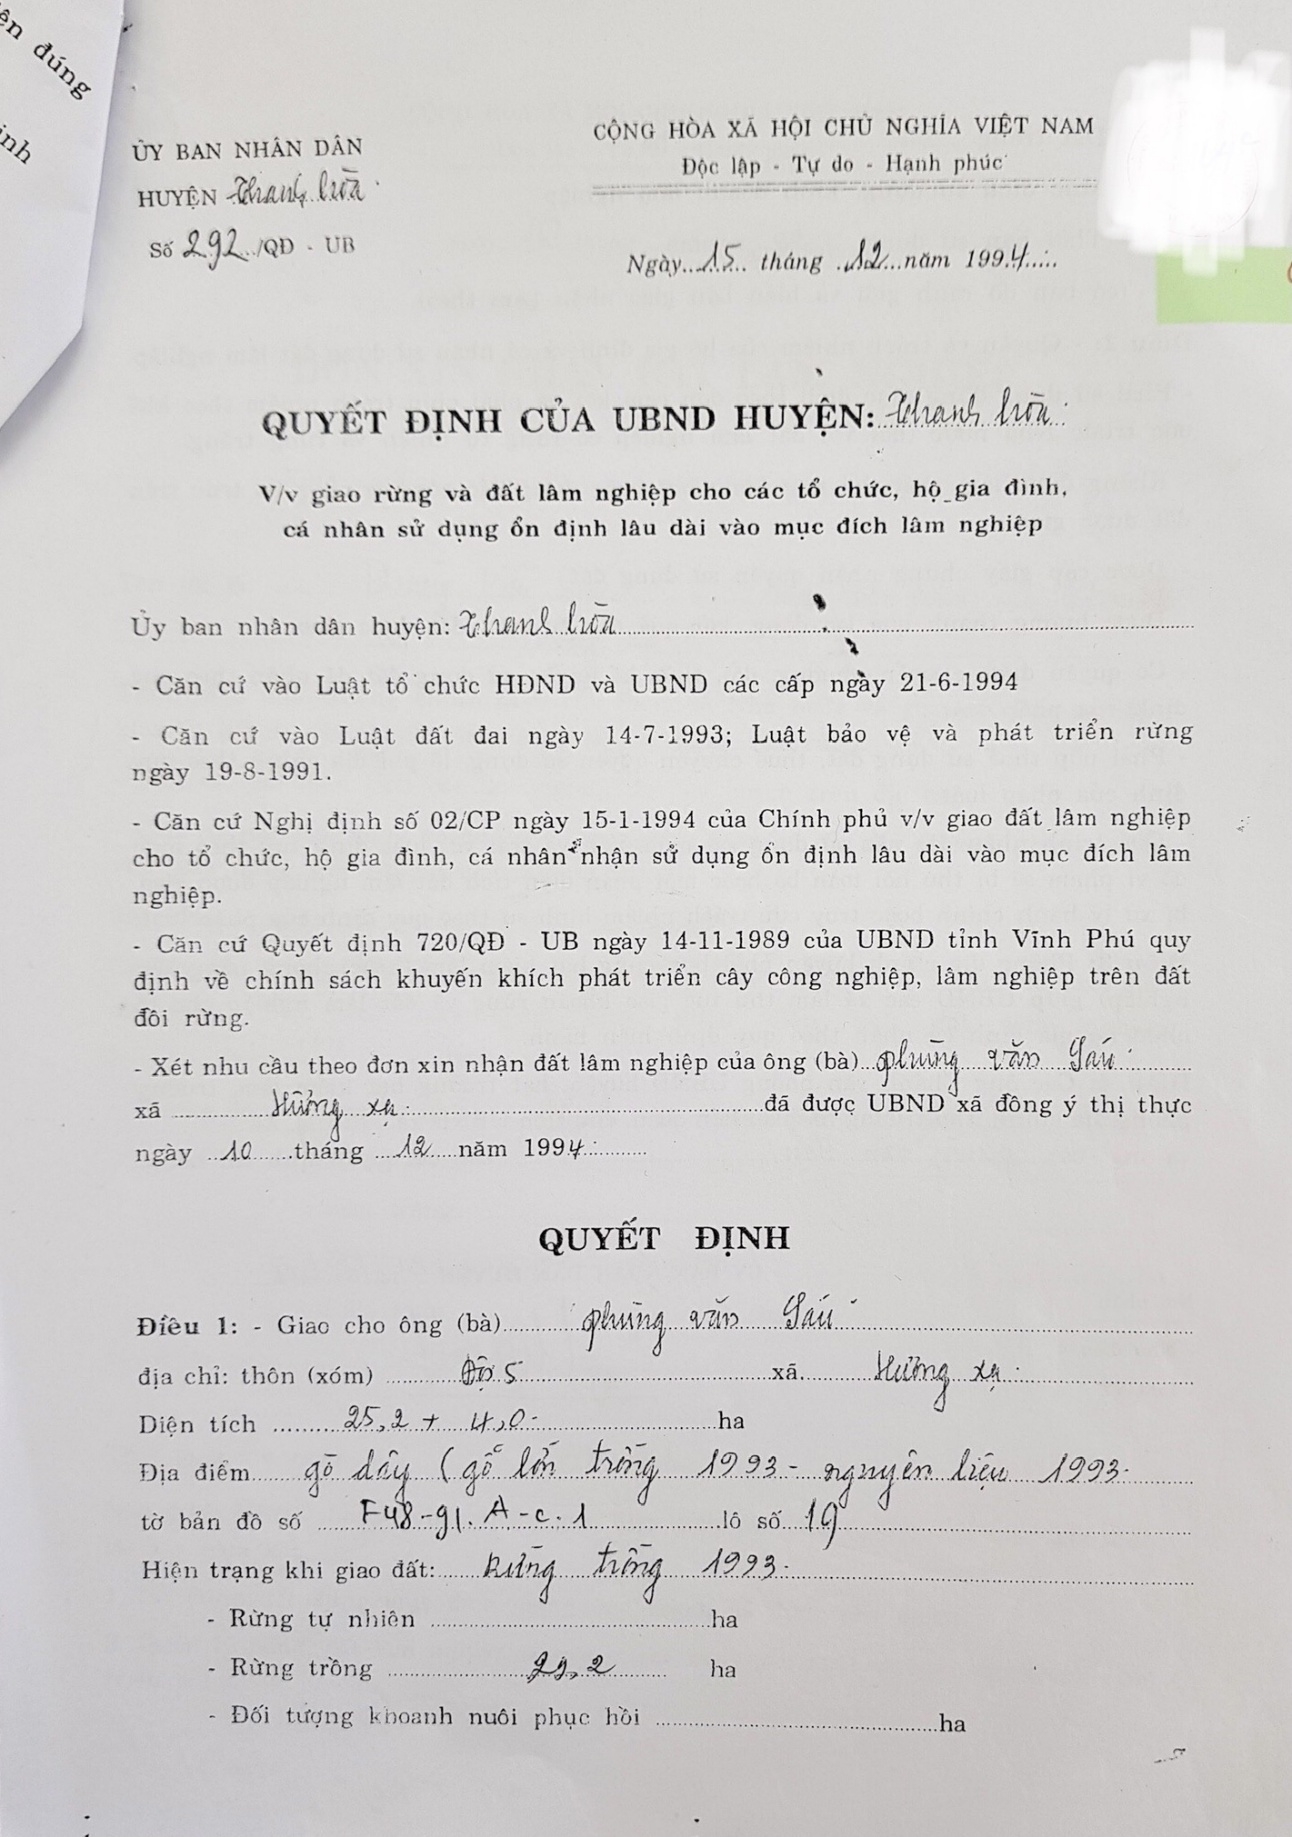 ên đúng
inh
ỦY BAN NHÂN DÂN
HUYỆN Thanh hòa
Số 292/QĐ - UB
CỘNG HÒA XÃ HỘI CHỦ NGHĨA VIỆT NAM
Độc lập - Tự do - Hạnh phúc
Ngày 15 tháng 12 năm 1994
QUYẾT ĐỊNH CỦA UBND HUYỆN: Thanh hòa
V/v giao rừng và đất lâm nghiệp cho các tổ chức, hộ gia đình,
cá nhân sử dụng ổn định lâu dài vào mục đích lâm nghiệp
Ủy ban nhân dân huyện: Thanh hòa
- Căn cứ vào Luật tổ chức HĐND và UBND các cấp ngày 21-6-1994
- Căn cứ vào Luật đất đai ngày 14-7-1993; Luật bảo vệ và phát triển rừng
ngày 19-8-1991.
- Căn cứ Nghị định số 02/CP ngày 15-1-1994 của Chính phủ v/v giao đất lâm nghiệp
cho tổ chức, hộ gia đình, cá nhân nhận sử dụng ổn định lâu dài vào mục đích lâm
nghiệp.
- Căn cứ Quyết định 720/QĐ - UB ngày 14-11-1989 của UBND tỉnh Vĩnh Phú quy
định về chính sách khuyến khích phát triển cây công nghiệp, lâm nghiệp trên đất
đồi rừng.
- Xét nhu cầu theo đơn xin nhận đất lâm nghiệp của ông (bà) phùng văn Sáu
xã Hương xạ đã được UBND xã đồng ý thị thực
ngày 10 tháng 12 năm 1994
QUYẾT ĐỊNH
Điều 1: - Giao cho ông (bà) phùng văn Sáu
địa chỉ: thôn (xóm) Đội 5 xã Hương xạ
Diện tích 25,2 + 4,0 ha
Địa điểm gò dây (gỗ lớn trồng 1993 - nguyên liệu 1993
tờ bản đồ số F48-91.A-c.1 lô số 19
Hiện trạng khi giao đất: Rừng trồng 1993
- Rừng tự nhiên ha
- Rừng trồng 29,2 ha
- Đối tượng khoanh nuôi phục hồi ha